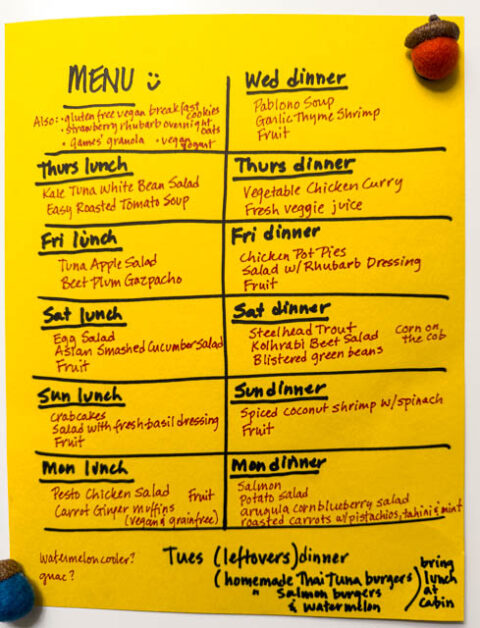 MENU
Also: • gluten free vegan breakfast cookies
• strawberry rhubarb overnight oats
• Games' granola • vegan yogurt
Wed dinner
Pablono Soup
Garlic Thyme Shrimp
Fruit
Thurs lunch
Kale Tuna White Bean Salad
Easy Roasted Tomato Soup
Thurs dinner
Vegetable Chicken Curry
Fresh veggie juice
Fri lunch
Tuna Apple Salad
Beet Plum Gazpacho
Fri dinner
Chicken Pot Pies
Salad w/ Rhubarb Dressing
Fruit
Sat lunch
Egg Salad
Asian Smashed Cucumber Salad
Fruit
Sat dinner
Steelhead Trout
Kolhrabi Beet Salad
Blistered green beans
Corn on
the cob
Sun lunch
Crabcakes
Salad with fresh-basil dressing
Fruit
Sun dinner
Spiced coconut shrimp w/spinach
Fruit
Mon lunch
Pesto Chicken Salad Fruit
Carrot Ginger muffins
(vegan & grainfree)
Mon dinner
Salmon
Potato salad
arugula corn blueberry salad
roasted carrots w/pistachios, tahini & mint
watermelon cooler?
guac?
Tues (leftovers) dinner
(homemade Thai Tuna burgers
" Salmon burgers
& watermelon)
bring
lunch
at
cabin